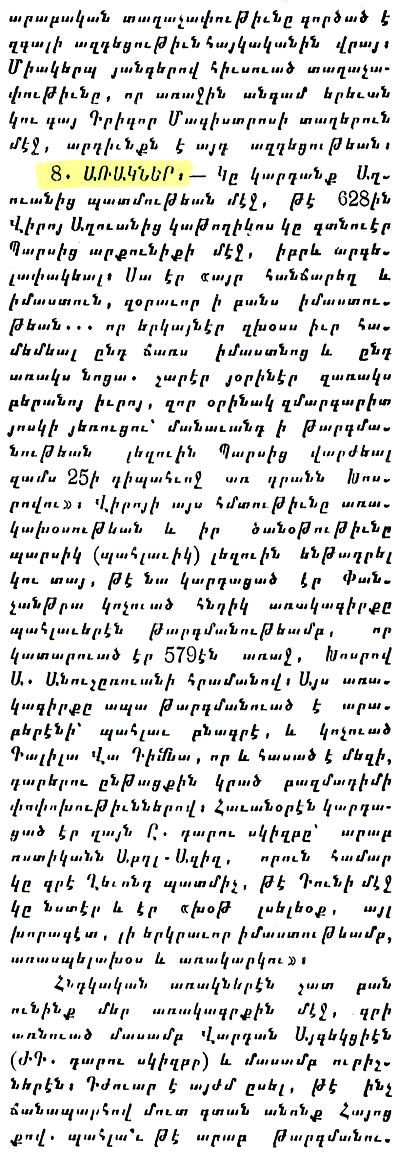 արաբական տաղաչափութիւնը գործած է
զգալի ազդեցութիւն հայկականին վրայ։
Միակերպ յանգերով հիւսուած տաղաչա-
փութիւնը, որ առաջին անգամ երեւան
կու գայ Գրիգոր Մագիստրոսի տաղերուն
մէջ, արդիւնքն է այդ ազդեցութեան։
8. ԱՌԱԿՆԵՐ։— Կը կարդանք Աղ-
ուանից պատմութեան մէջ, թէ 628ին
Վիրոյ Աղուանից կաթողիկոս կը գտնուէր
Պարսից արքունիքի մէջ, իբրև արգե-
լափակեալ։ Սա էր «այր հանճարեղ և
իմաստուն, զօրաւոր ի բանս իմաստու-
թեան... որ երկայնէր զխօսս իւր հա-
մեմեալ ընդ ճառս իմաստնոց և ընդ
առակս նոցա. շարէր յօրինէր զառակս
բերանոյ իւրոյ, զոր օրինակ զմարգարիտ
յոսկի յեռուցու՝ մանաւանդ ի թարգմա-
նութեան լեզուին Պարսից վարժեալ
զամս 25ի դիպահոջ առ դրանն Խոս-
րովու»։ Վիրոյի այս հմտութիւնը առա-
կախօսութեան և իր ծանօթութիւնը
պարսիկ (պահլաւիկ) լեզուին ենթադրել
կու տայ, թէ նա կարդացած էր Փան-
չանթրա կոչուած հնդիկ առակագիրքը
պահլաւերէն թարգմանութեամբ, որ
կատարուած էր 579էն առաջ, Խոսրով
Ա. Անուշըռուանի հրամանով։ Այս առա-
կագիրքը ապա թարգմանուած է արա-
բերէնի՝ պահլաւ բնագրէ, և կոչուած
Գալիլա Վա Դիմնա, որ և հասած է մեզի,
դարերու ընթացքին կրած բազմադիմի
փոփոխութիւններով։ Հաւանօրէն կարդա-
ցած էր զայն Ը. դարու սկիզբը՝ արաբ
ոստիկանն Աբդլ-Ազիզ, որուն համար
կը գրէ Ղեւոնդ պատմիչ, թէ Դունի մէջ
կը նստէր և էր «խօթ լսելեօք, այլ
խորագէտ, լի երկրաւոր իմաստութեամբ,
առասպելախօս և առակարկու»։
Հնդկական առակներէն շատ բան
ունինք մեր առակագրքին մէջ, գրի
առնուած մասամբ Վարդան Այգեկցիէն
(ԺԳ. դարու սկիզբը) և մասամբ ուրիշ-
ներէն։ Դժուար է այժմ ըսել, թէ ինչ
ճանապարհով մուտ գտան անոնք Հայոց
քով. պահլա՞ւ թէ արաբ թարգմանու-